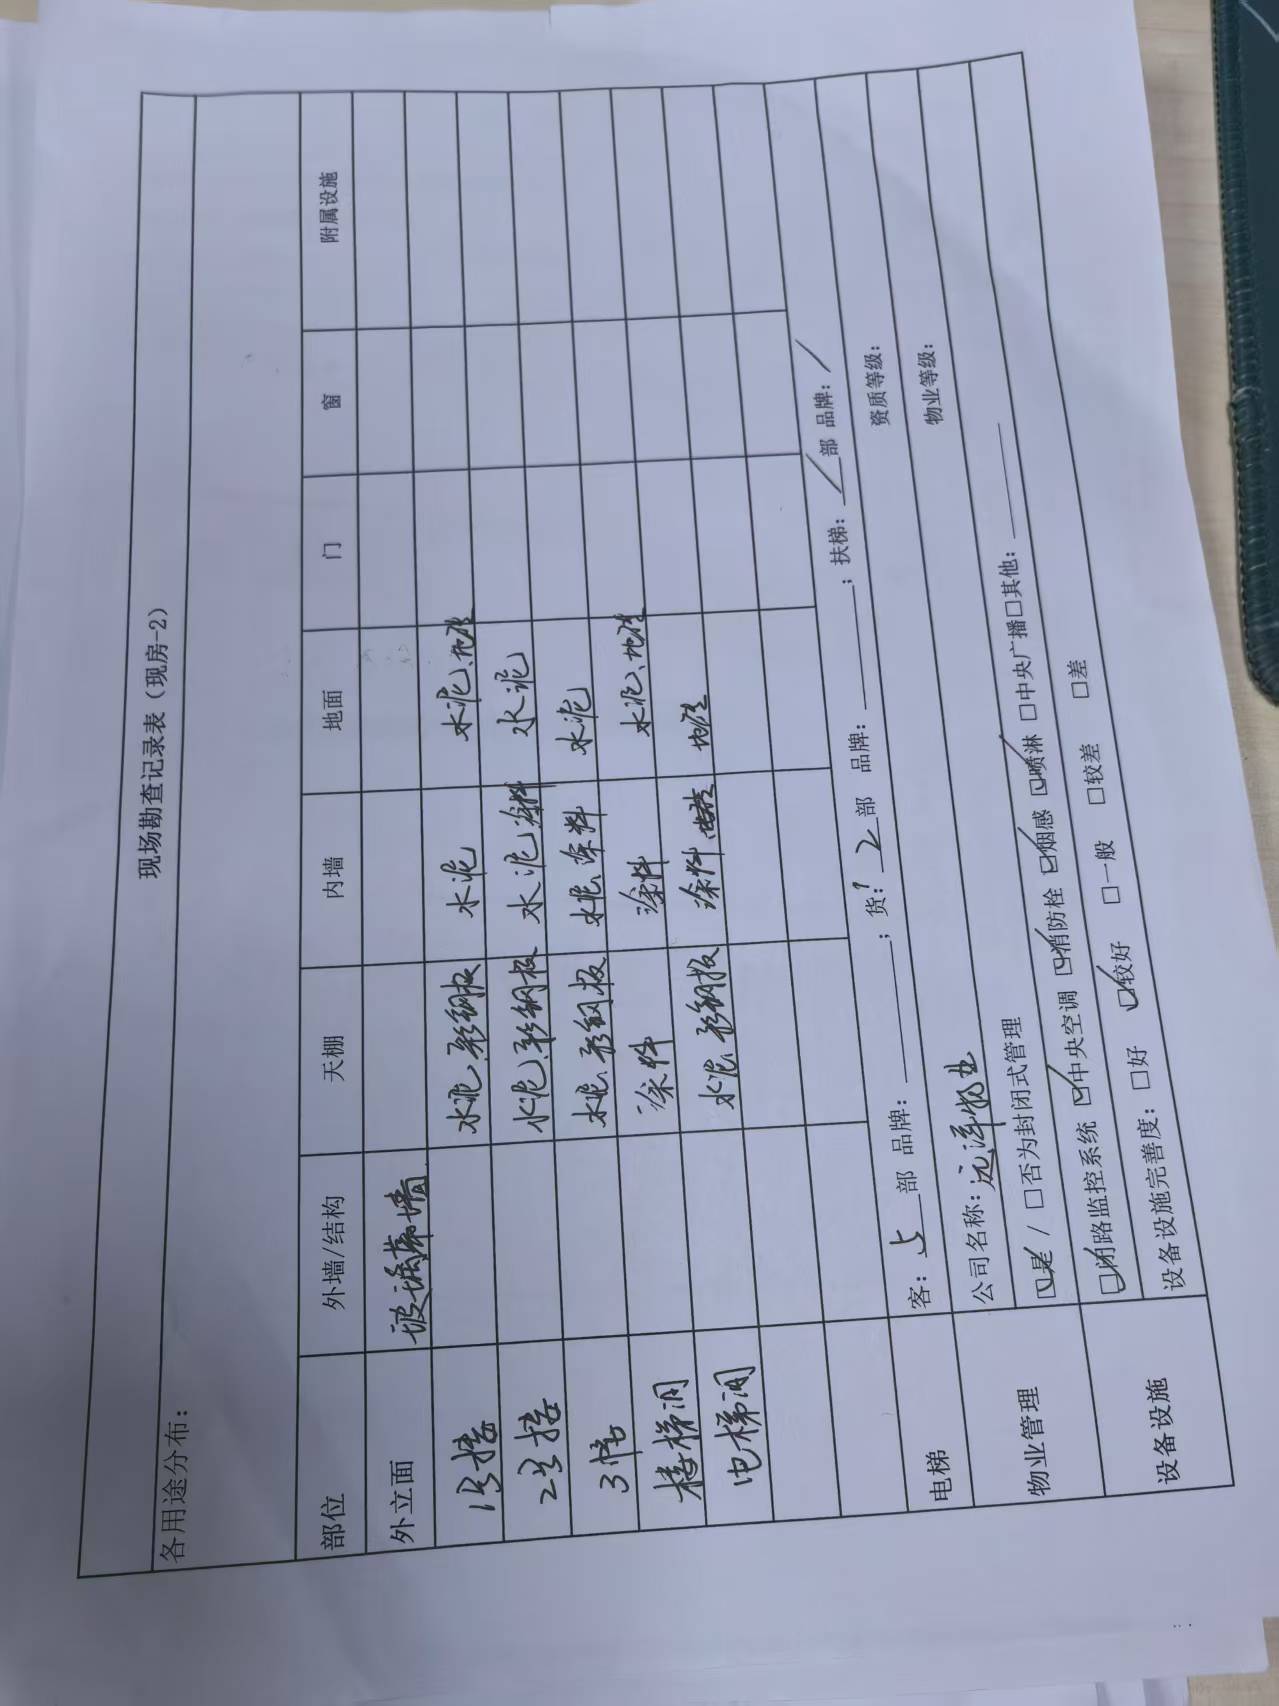 现场勘查记录表（现房-2）
各用途分布：
部位 外墙/结构 天棚 内墙 地面 门 窗 附属设施
外立面 玻璃幕墙
1号楼 水泥、彩钢板 水泥 水泥、地砖
2号楼 水泥、彩钢板 水泥、涂料 水泥
3号 水泥、彩钢板 水泥、涂料 水泥
楼梯间 涂料 涂料 水泥、地砖
电梯间 水泥、彩钢板 涂料、 地砖
电梯 客：5部 品牌：；货：2部 品牌：；扶梯：/部 品牌：/
物业管理 公司名称：远洋物业 资质等级：
☑是/□否为封闭式管理 物业等级：
设备设施 ☑闭路监控系统 ☑中央空调 ☑消防栓 ☑烟感 ☑喷淋 □中央广播□其他：
设备设施完善度：□好 ☑较好 □一般 □较差 □差